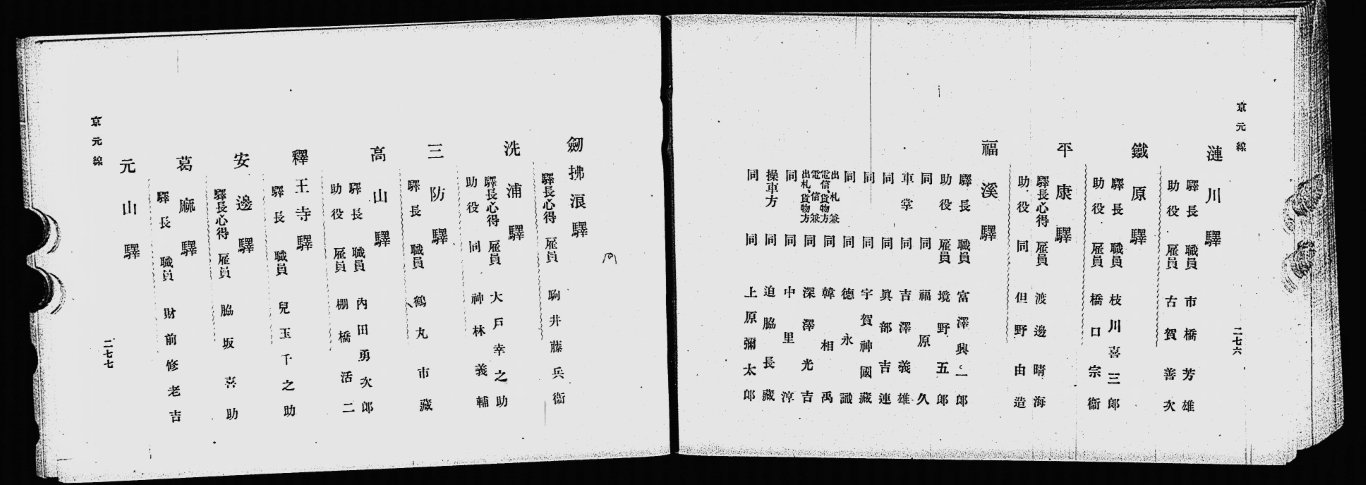 京元線
漣川驛
驛長 職員 市橋芳雄
助役 雇員 古賀善次
鐵原驛
驛長 職員 枝川喜三郎
助役 雇員 橋口宗衞
平康驛
驛長心得 雇員 渡邊晴海
助役 同 但野由造
福溪驛
驛長 職員 富澤興一郎
助役 雇員 境野五郎
同 同 福原久
車掌 同 吉澤義雄
同 同 眞部吉連
同 同 宇賀神國藏
同 同 德永
出札兼電信、貨物方 同 韓相禹
電信兼出札、貨物方 同 深澤光吉
同 同 中里淳
操車方 同 迫脇長藏
同 同 上原彌太郎
二七六
劒拂浪驛
驛長心得 雇員 駒井藤兵衞
洗浦驛
驛長心得 雇員 大戸幸之助
助役 同 神林義輔
三防驛
驛長 職員 鶴丸市藏
高山驛
驛長 職員 內田勇次郎
助役 雇員 棚橋活二
釋王寺驛
驛長 職員 兒玉千之助
安邊驛
驛長心得 雇員 脇坂喜助
葛麻驛
驛長 職員 財前修老吉
元山驛
京元線
二七七